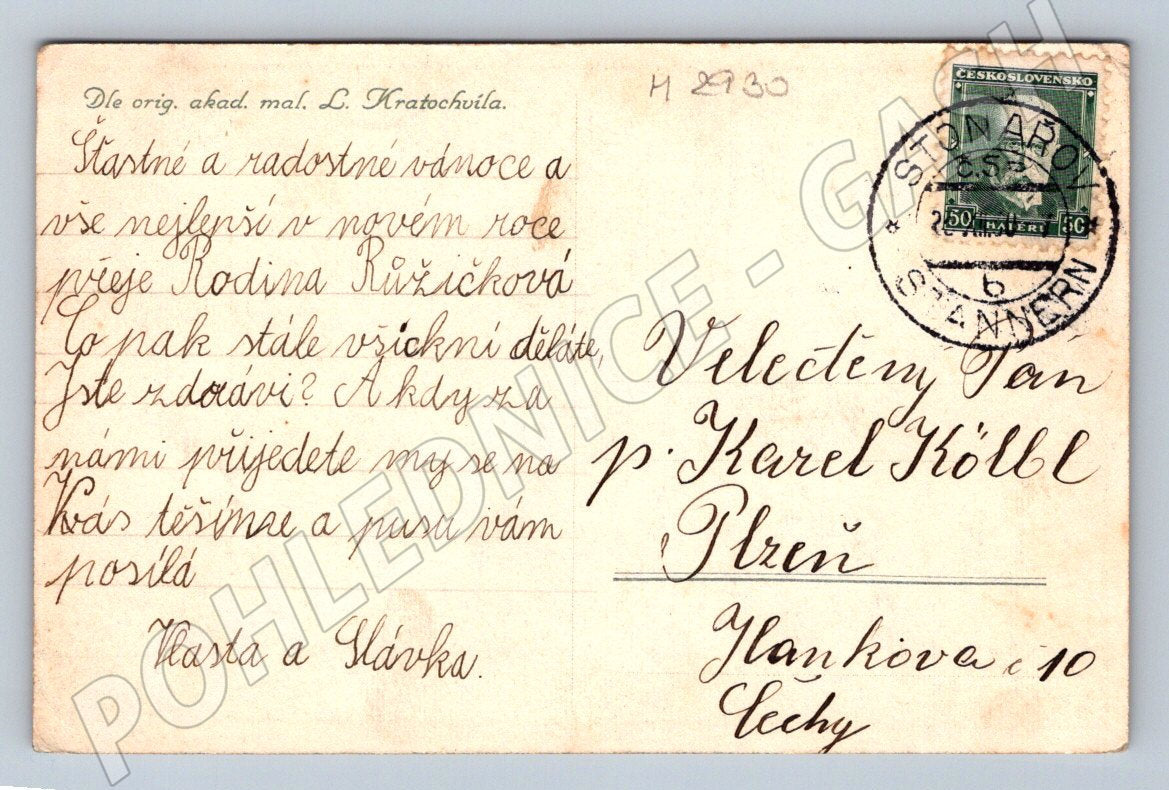 Dle orig. akad. mal. L. Kratochvíla.
M 2930
Šťastné a radostné vánoce a
vše nejlepší v novém roce
přeje Rodina Růžičková
Co pak stále všickni děláte,
Jste zdrávi? A kdy za
námi přijedete my se na
Vás těšíme a pusu vám
posílá
Vlasta a Slávka.
ČESKOSLOVENSKO
50 HALÉŘŮ 50
STONAŘOV
Č.S.P.
b
STANNERN
Velectěný Pán
p. Karel Kölbl
Plzeň
Hankova č 10
Čechy
POHLEDNICE - GASH